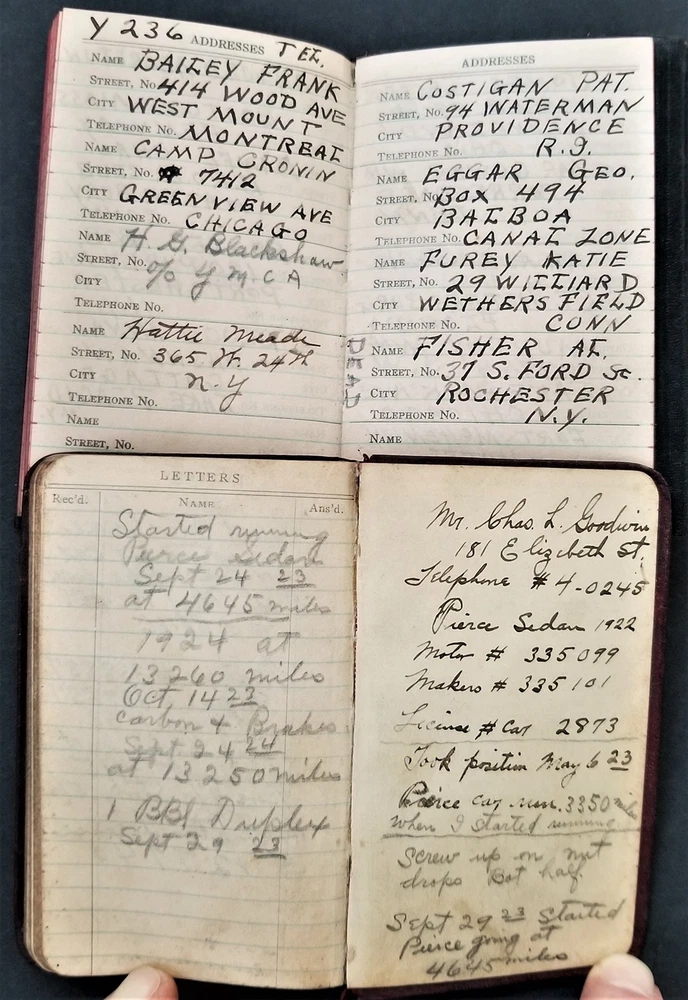 Y 236 ADDRESSES TEL.
NAME BAILEY FRANK
STREET, NO. 414 WOOD AVE
CITY WEST MOUNT
TELEPHONE NO. MONTREAL
NAME CAMP CRONIN
STREET, NO. # 7412
CITY GREENVIEW AVE
TELEPHONE NO. CHICAGO
NAME H. G. Blackshaw
STREET, NO. c/o Y M C A
CITY
TELEPHONE NO.
NAME Hattie Meade
STREET, NO. 365 W. 24th
CITY N.Y
TELEPHONE NO.
NAME
STREET, NO.
ADDRESSES
NAME COSTIGAN PAT.
STREET, NO. 94 WATERMAN
CITY PROVIDENCE
TELEPHONE NO. R.I.
NAME EGGAR GEO.
STREET, NO. BOX 494
CITY BALBOA
TELEPHONE NO. CANAL ZONE
NAME FUREY KATIE
STREET, NO. 29 WILLIARD
CITY WETHERSFIELD
TELEPHONE NO. CONN
DEAD
NAME FISHER AL.
STREET, NO. 37 S. FORD ST.
CITY ROCHESTER
TELEPHONE NO. N.Y.
NAME
LETTERS
Rec'd. NAME Ans'd.
Started running
Pierce Sedan
Sept 24 23
at 4645 miles
1924 at
13260 miles
Oct, 14 23
carbon + Brakes
Sept 24 24
at 13250 miles
1 BBl Duplex
Sept 29 23
Mr. Chas. L. Goodwin
181 Elizebeth St.
Telephone # 4-0245
Pierce Sedan 1922
Motor # 335099
Makers # 335101
License # Car 2873
Took position May 6 23
Pierce car run. 3350 miles
when I started running
Screw up on nut
drops Bot half
Sept 29 23 Started
Pierce going at
4645 miles